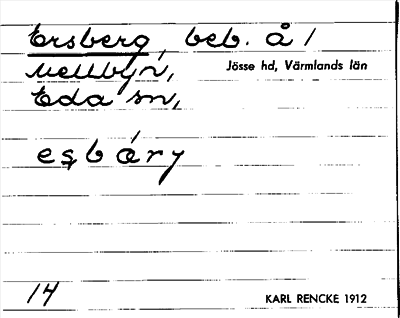 Ersberg, beb. å /
Mellbyn, Jösse hd, Värmlands län
Eda sn,
14 KARL RENCKE 1912